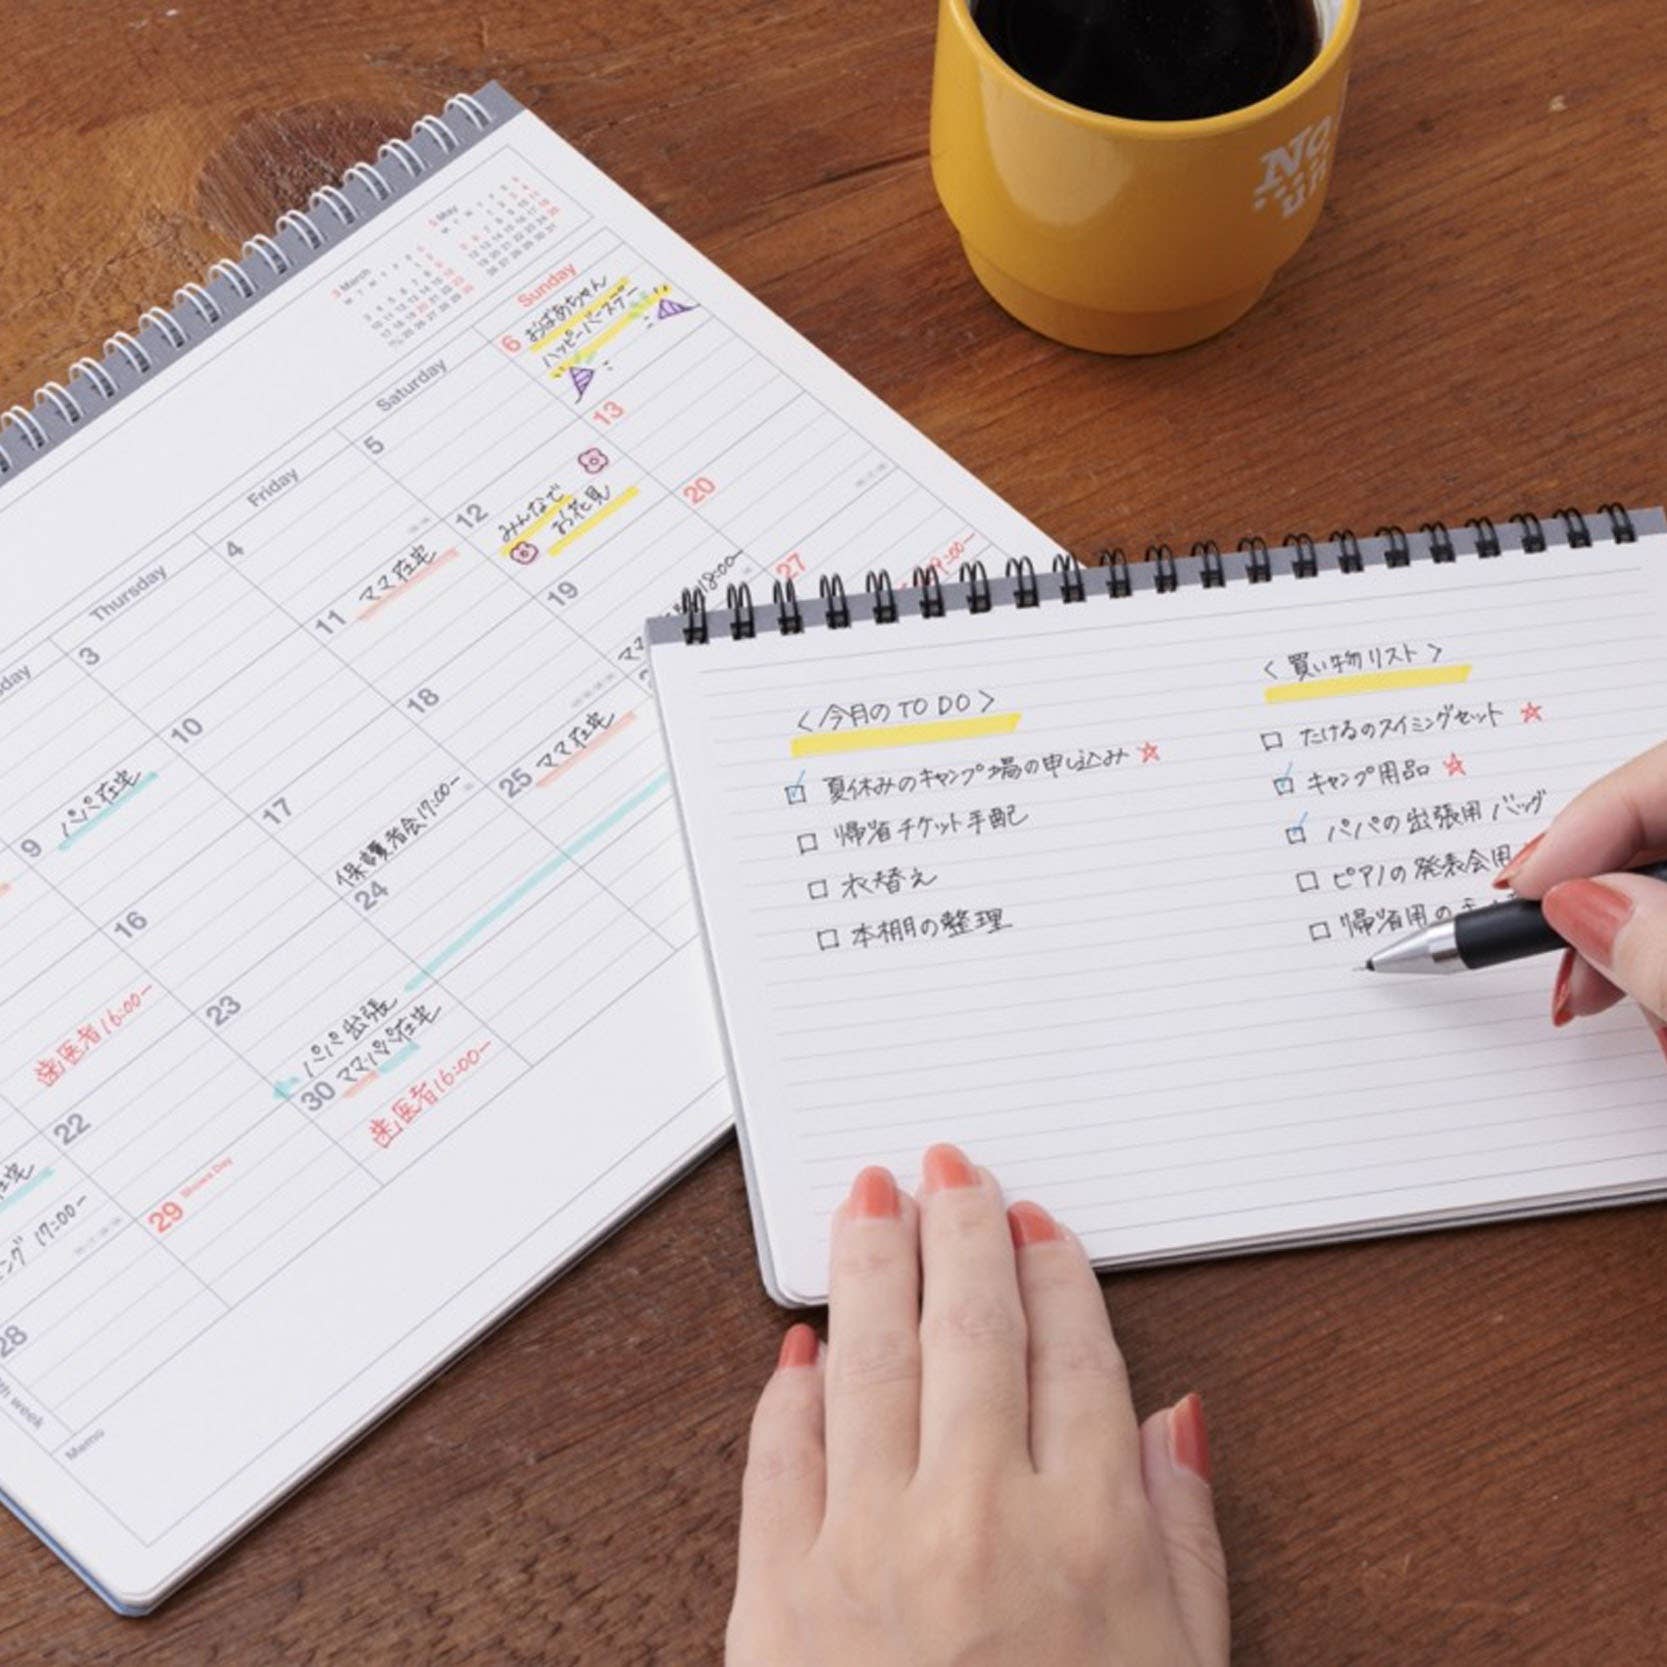 3 March
5 May
Thursday
Friday
Saturday
Sunday
3
4
5
6 おばあちゃん
ハッピーバースデー
9 パパ在宅
10
11 ママ在宅
12 みんなで
お花見
13
16
歯医者16:00ー
17
18
保護者会17:00ー
19
18:00ー
20
22
23
パパ出張
24
25 ママ在宅
27
9:00ー
28
29 Showa Day
30 ママパパ在宅
歯医者16:00ー
17:00ー
week
Memo
NO
un
<今月のTO DO>
夏休みのキャンプ場の申し込み☆
帰省チケット手配
衣替え
本棚の整理
<買い物リスト>
たけるのスイミングセット☆
キャンプ用品☆
パパの出張用バッグ
ピアノの発表会用
帰省用の